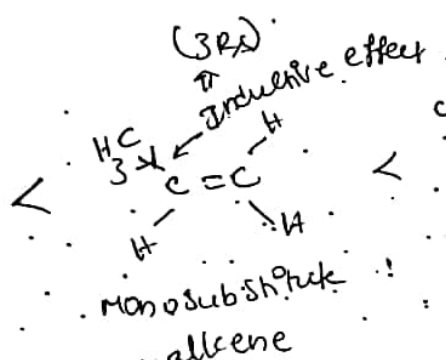 (3Rs)
Inductive effect
H
H3C
< C = C <
H H
Monosubstitute
alkene